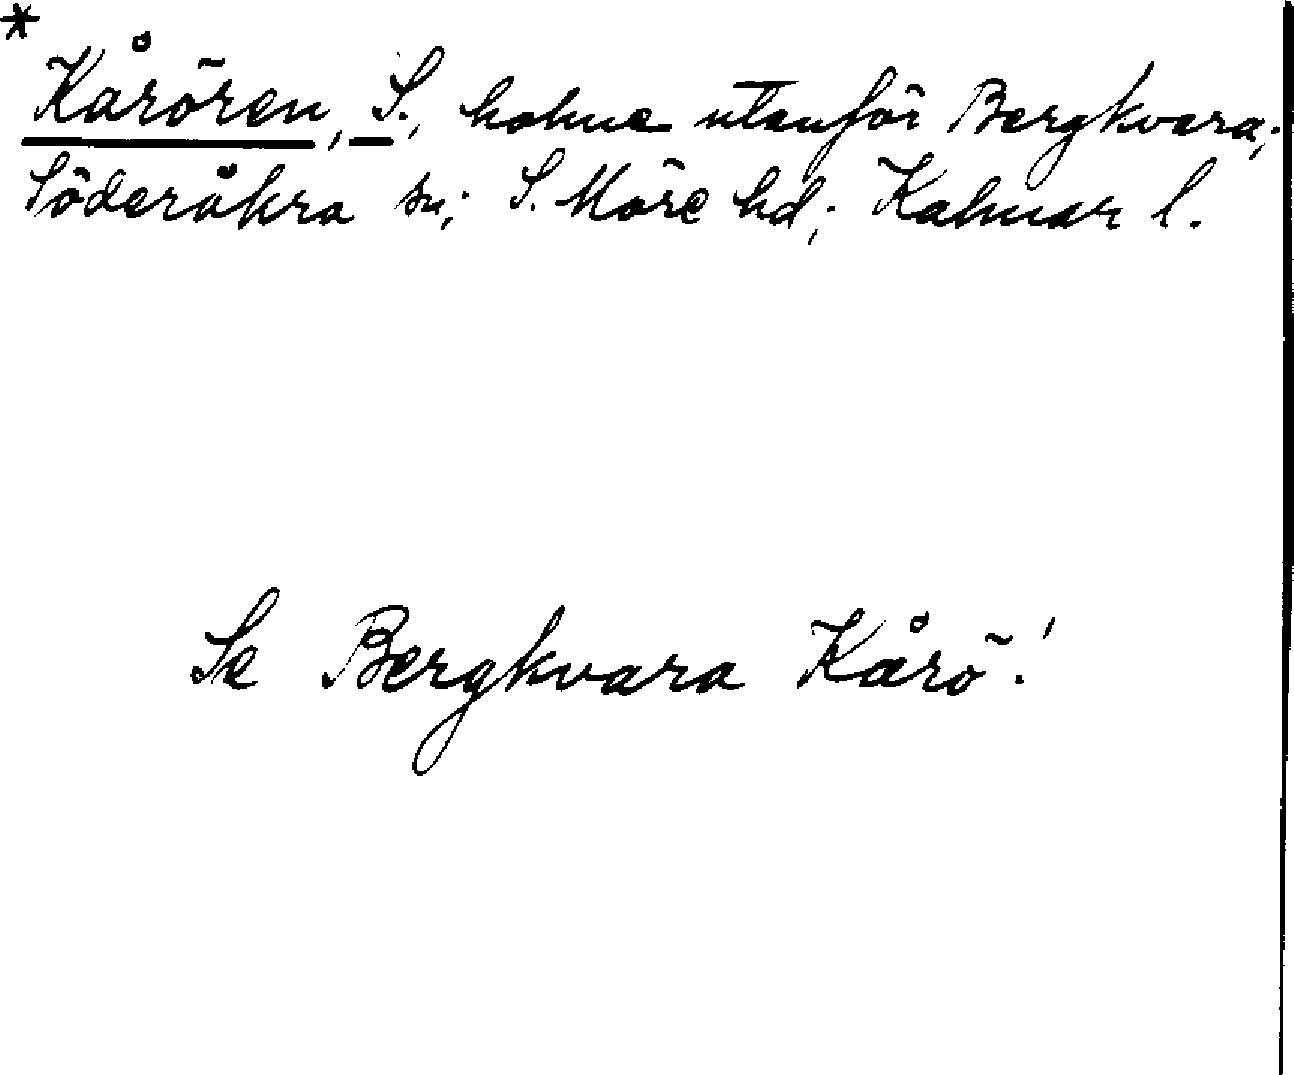 *
Kårören, S., holme utanför Bergkvara,
Söderåkra sn; S. Möre hd; Kalmar l.
Se Bergkvara Kårö!